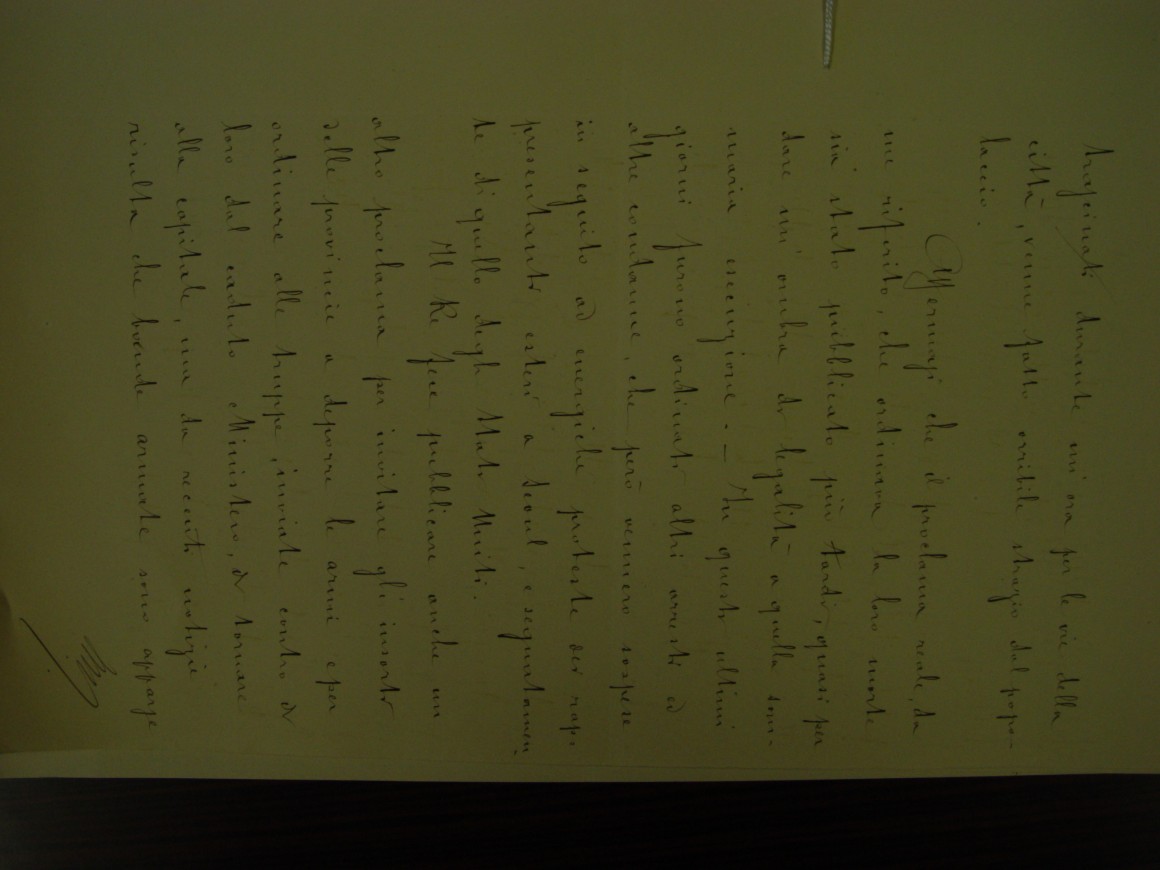 trascinati durante un'ora per le vie della
città, venne fatto orribile strazio dal popo-
laccio.
Affermasi che il proclama reale, da
me riferito, che ordinava la loro morte
sia stato pubblicato più tardi, quasi per
dare un'ombra di legalità a quella som-
maria esecuzione. — In questi ultimi
giorni furono ordinati altri arresti ed
altre condanne, che però vennero sospese
in seguito ad energiche proteste dei rap-
presentanti esteri a Seoul, e segnatamen
te di quello degli Stati Uniti.
Il Re fece pubblicare anche un
altro proclama per invitare gli insorti
delle provincie a deporre le armi e per
ordinare alle truppe, inviate contro di
loro dal caduto Ministero, di tornare
alla capitale, ma da recenti notizie
risulta che bande armate sono apparse